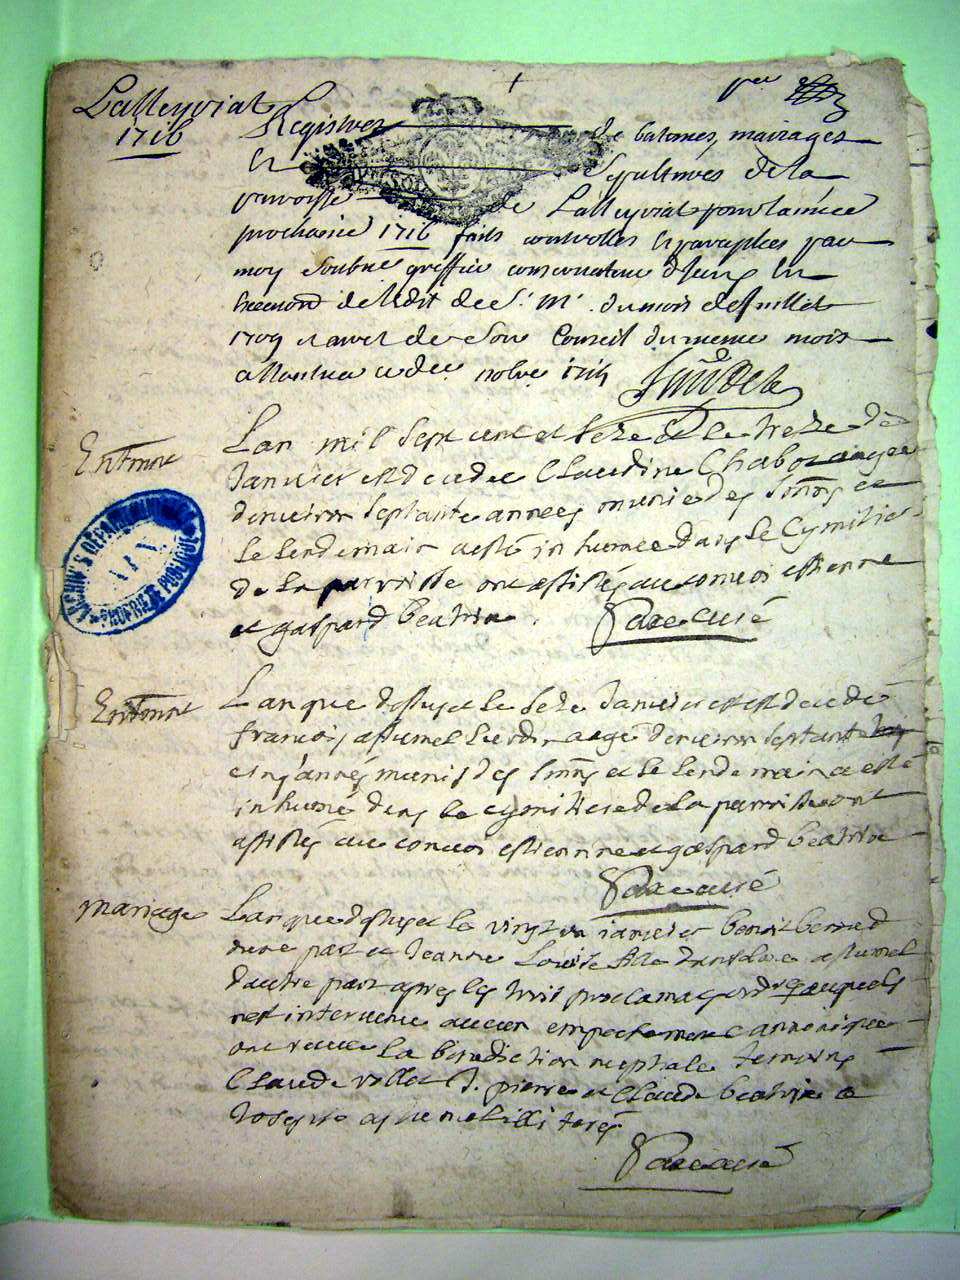 Lalleyriat
1716
Registres de batemes, mariages
et Sepultures de la
parroisse de Lalleyriat pour lannee
prochaine 1716 faits controlles et paraphes par
moy Soubne greffier conservateur
de ledit de S. M. du mois de Juillet
1709 et arret de Son Conseil du meme mois
a Nantua ce nobre 1715
Enterremt
Lan mil sept cent et seze et le treze de
Janvier est decedee Claudine Chaboz aagee
denviron septante annees munie des Srens et
le lendemain a esté inhumee dans le Cymitiere
de la parroisse ont assistés au convoi estienne
et gaspard beatrix. curé
Enterremt
Lan que dessus et le seze Janvier est decedé
francois assumel aagé denviron septante
cinq années munis des Srens et le lendemain a esté
inhumé dans le cymitiere de la parroisse ont
assistés au convoi estienne et gaspard beatrix
curé
mariage
Lan que dessus et le vingt un janvier benoit
dune part et Jeanne Louise fille dantoine assumel
dautre part apres les trois proclamaōns auxquels
nest intervenu aucun empechement canonique
ont receu la benediction nuptiale temoins
Claude vollet J. pierre et Claude beatrix et
Joseph assumel illiterés
curé
ARCHIVES DÉPARTEMENTALES
AIN
PROPRIÉTÉ PUBLIQUE